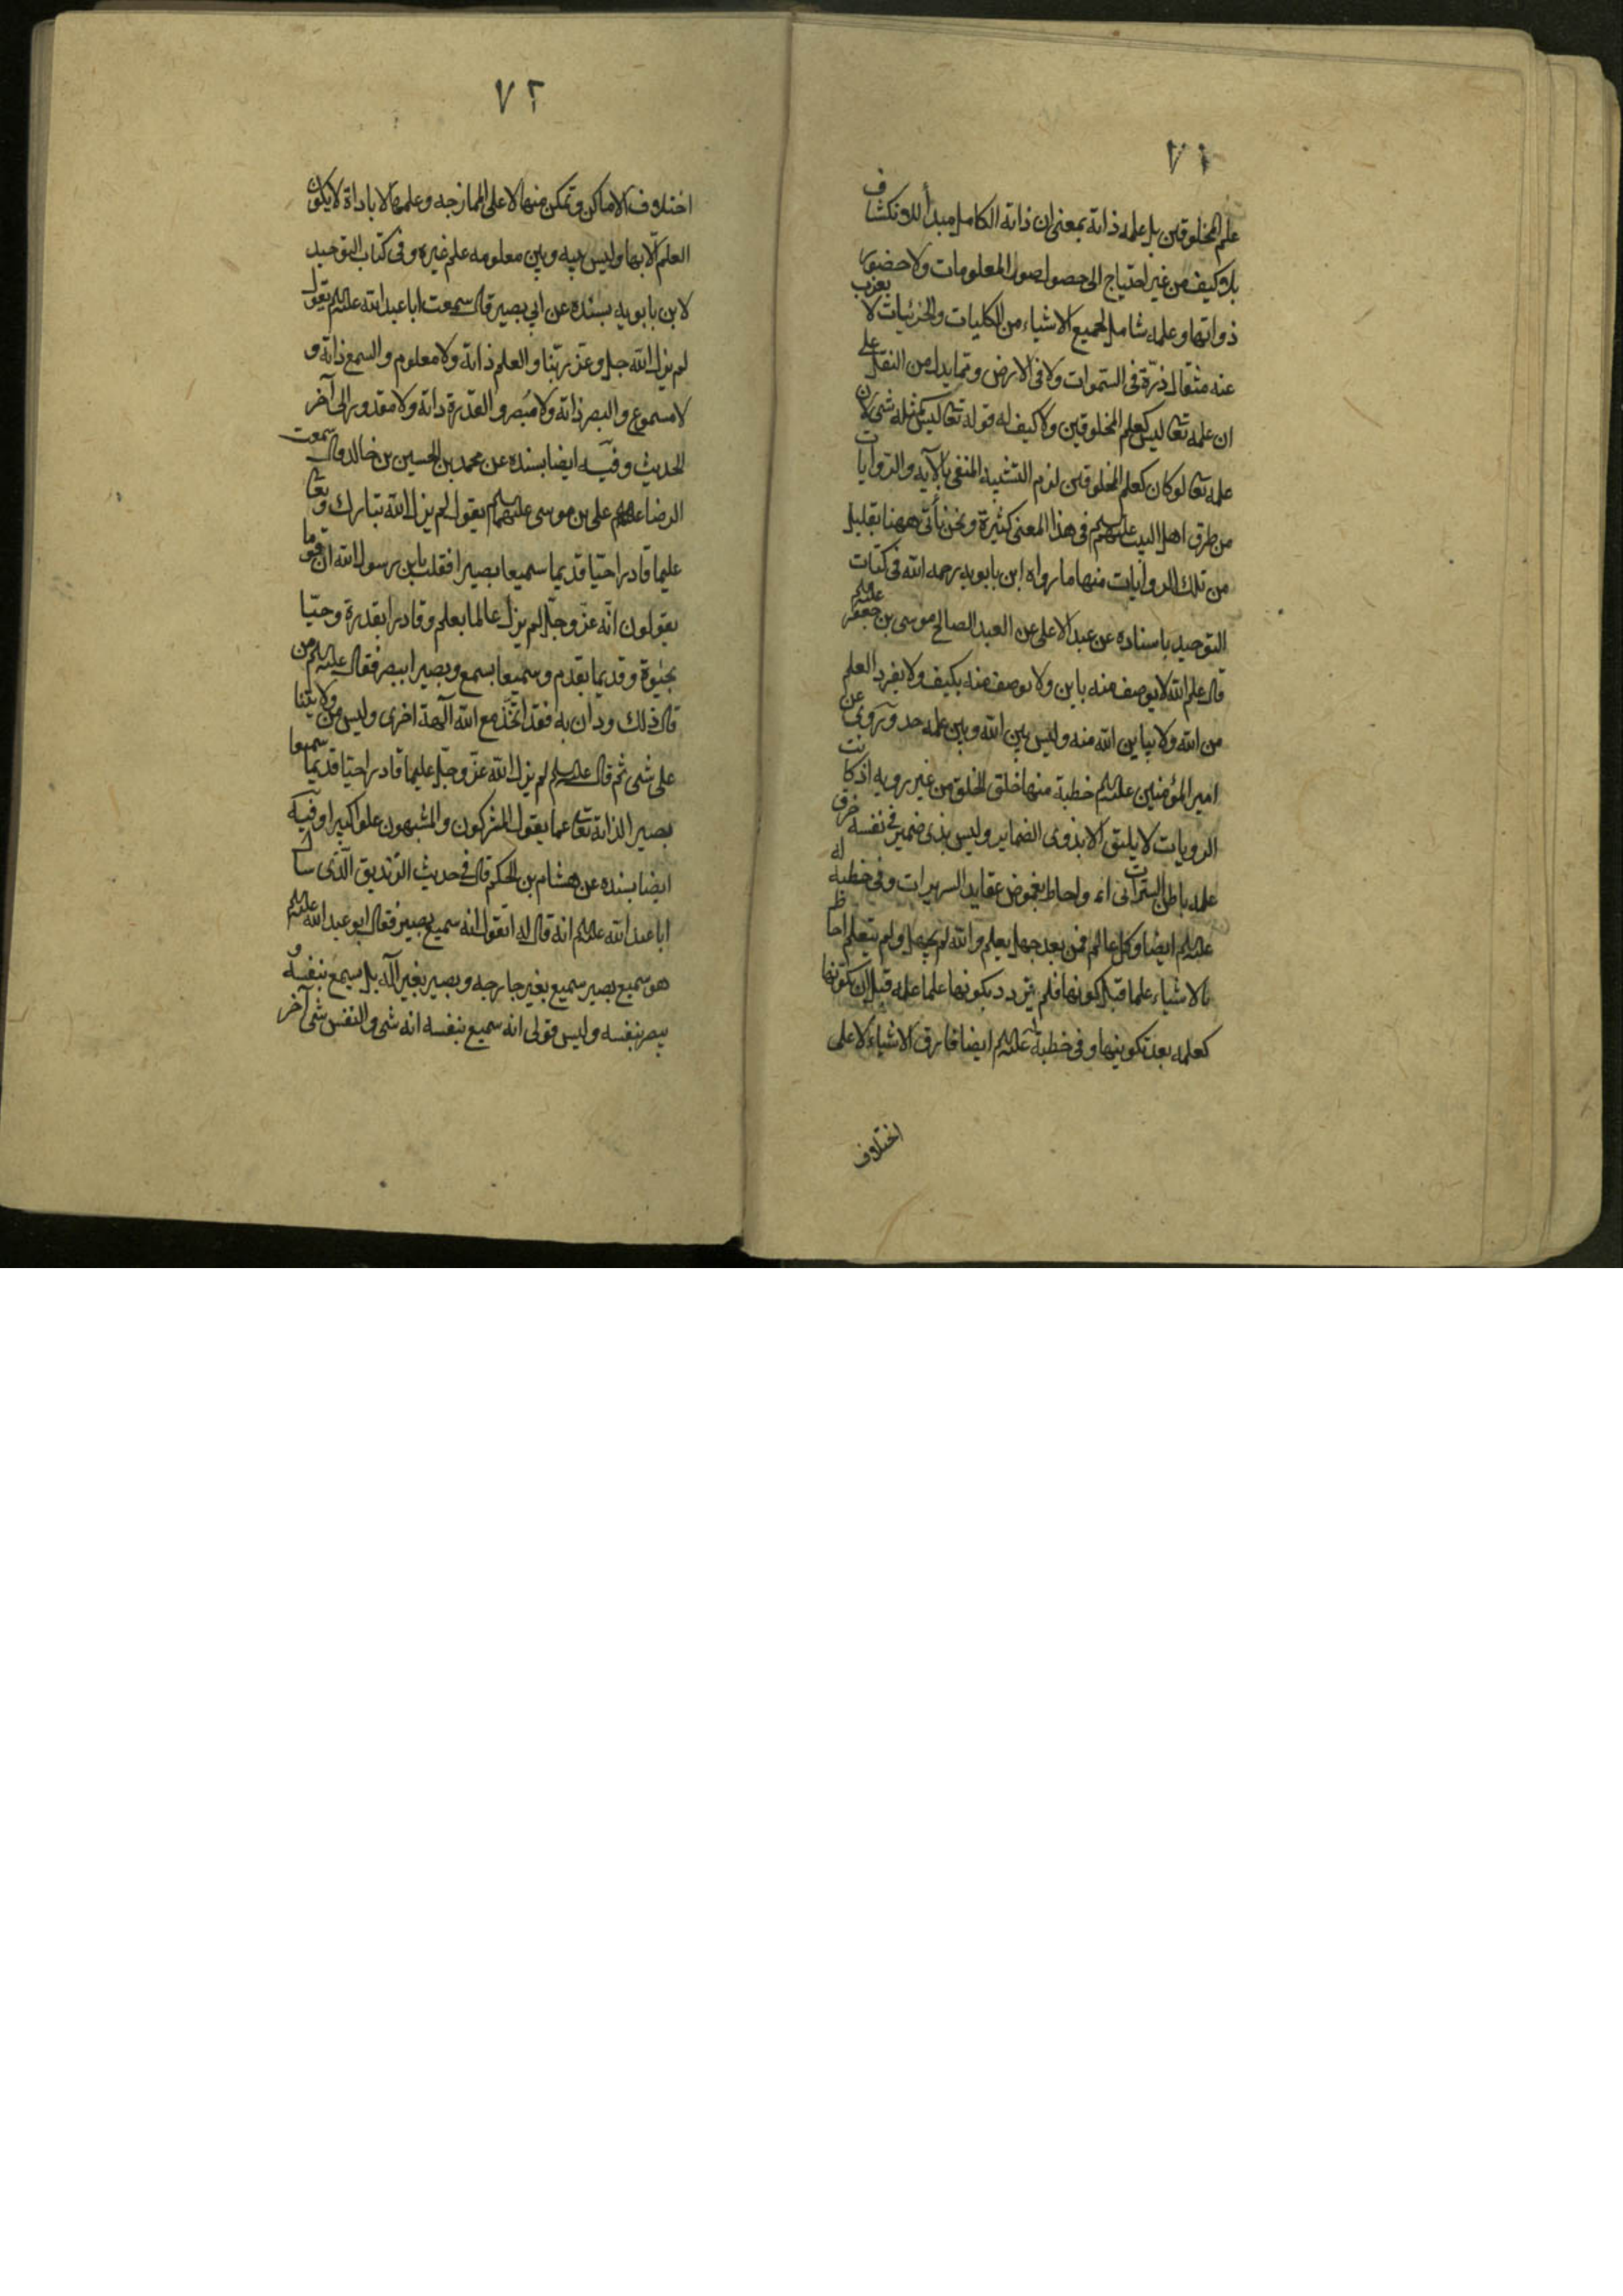 ٧١
علم المخلوقين بل علمه ذاته بمعنى ان ذاته الكامل مبدأ للانكشاف
بلا كيف من غير احتياج الى حصول صور المعلومات ولا حضور
ذواتها وعلمه شامل لجميع الاشياء من الكليات والجزئيات لا يعزب
عنه مثقال ذرة فى السموات ولا فى الارض ومما يدل من النقل على
ان علمه تعالى ليس كعلم المخلوقين ولا كيف له قوله تعالى ليس كمثله شئ لان
علمه تعالى لو كان كعلم المخلوقين لزم التشبيه المنفى بالآيه والروايات
من طرق اهل البيت عليهم السلم فى هذا المعنى كثيرة ونحن نأتى ههنا بقليل
من تلك الروايات منها ما رواه ابن بابويه رحمه الله فى كتاب
التوحيد باسناده عن عبد الاعلى عن العبد الصالح موسى بن جعفر عليه السلم
قال علم الله لا يوصف منه باين ولا يوصف منه بكيف ولا يفرد العلم
من الله ولا يباين الله منه وليس بين الله وبين علمه حد وروى عن
امير المؤمنين عليه السلم خطبة منها خلق الخلق من غير رويه اذ كانت
الرويات لا يليق الا بذوى الضماير وليس بذى ضمير فى نفسه خرق
علمه باطن السترات واحاط بغموض عقايد السريرات وفى خطبة له
عليه السلم ايضا وكل عالم فمن بعد جهل يعلم والله لم يجهل ولم يتعلم احاط
بالاشياء علما قبل كونها فلم يزدد بكونها علما علمه قبل ان يكونها
كعلمه بعد تكوينها وفى خطبة عليه السلم ايضا فارق الاشياء لا على
اختلاف
٧٢
اختلاف الاماكن وتمكن منها لا على الممازجه وعلمها لا باداة لا يكون
العلم الا بها وليس بينه وبين معلومه علم غيره وفى كتاب التوحيد
لابن بابويه بسنده عن ابي بصير قال سمعت ابا عبد الله عليه السلم يقول
لم يزل الله جل وعز ربنا والعلم ذاته ولا معلوم والسمع ذاته و
لا مسموع والبصر ذاته ولا مبصر والقدرة ذاته ولا مقدور الى آخر
الحديث وفيه ايضا بسنده عن محمد بن الحسين بن خالد قال سمعت
الرضا على بن موسى عليهما السلم يقول لم يزل الله تبارك وتعالى
عليما قادرا حيّا قديما سميعا بصيرا فقلت يابن رسول الله ان قوما
يقولون انّه عزّ وجلّ لم يزل عالما بعلم وقادرا بقدرة وحيّا
بحيوة وقديما بقدم وسميعا بسمع وبصيرا ببصر فقال عليه السلم من
قال ذلك ودان به فقد اتّخذ مع الله آلهة اخرى وليس من ولايتنا
على شئ ثم قال عليه السلم لم يزل الله عزّ وجلّ عليما قادرا حيّا قديما سميعا
بصيرا لذاته تعالى عما يقول المشركون والمشبهون علوا كبيرا وفيه
ايضا بسنده عن هشام بن الحكم قال فى حديث الزنديق الذى سأل
ابا عبد الله عليه السلم انه قال له اتقول انه سميع بصير فقال ابو عبد الله عليه السلم
هو سميع بصير سميع بغير جارحه وبصير بغير آله بل يسمع بنفسه و
يبصر بنفسه وليس قولى انه سميع بنفسه انه شئ والنفس شئ آخر